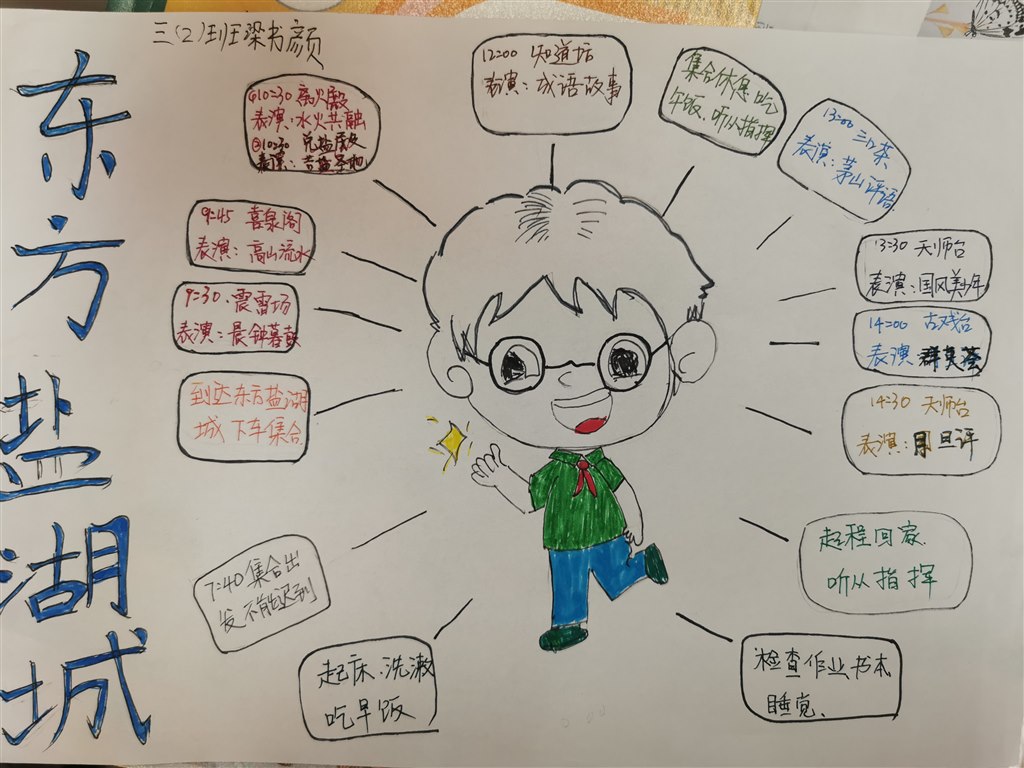 三(2)班梁书颜
东方盐湖城
起床、洗漱
吃早饭
7:40集合出
发不能迟到
到达东方盐湖
城下车集合
9:30、震雷场
表演:晨钟暮鼓
9:45 喜泉阁
表演:高山流水
①10:30 离火殿
表演:水火共融
②10:30
表演:
12:00 知道坊
表演:成语故事
集合休息吃
午饭、听从指挥
13:00 三口茶
表演:茅山评语
13:30 天师台
表演:国风美少年
14:00 古戏台
表演:群英荟
14:30 天师台
表演:月旦评
起程回家、
听从指挥
检查作业书本
睡觉、